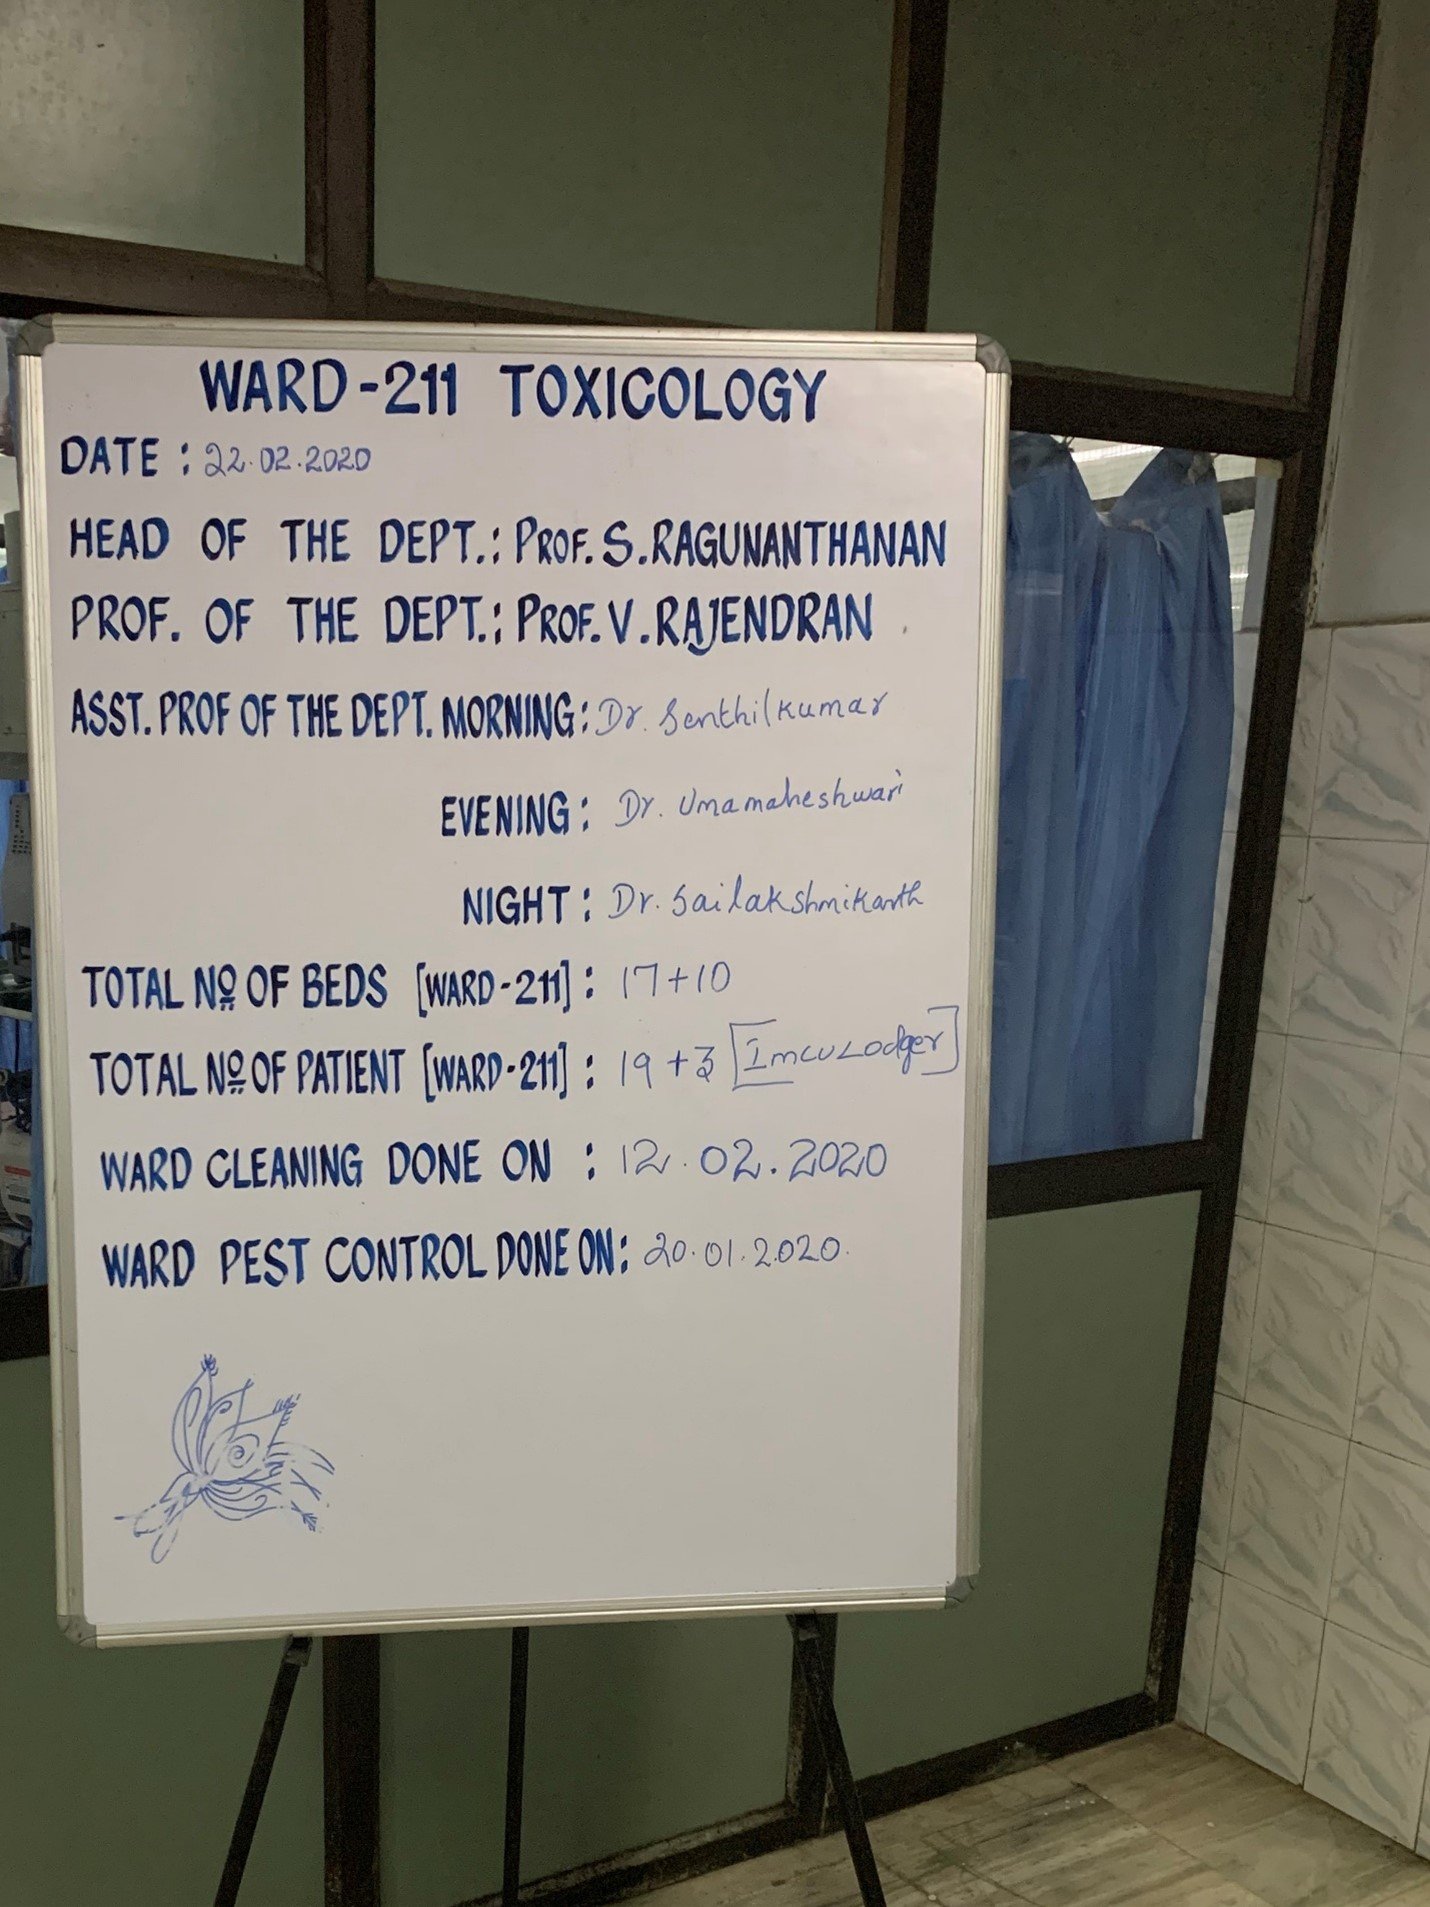 WARD-211 TOXICOLOGY
DATE : 22.02.2020
HEAD OF THE DEPT.: PROF. S. RAGUNANTHANAN
PROF. OF THE DEPT.: PROF. V. RAJENDRAN
ASST. PROF OF THE DEPT. MORNING: Dr. Senthilkumar
EVENING: Dr. Umamaheshwari
NIGHT: Dr. Sailakshmikanth
TOTAL Nº OF BEDS [WARD-211] : 17+10
TOTAL Nº OF PATIENT [WARD-211] : 19 +3 [Imcu Lodger]
WARD CLEANING DONE ON : 12.02.2020
WARD PEST CONTROL DONE ON: 20.01.2020.